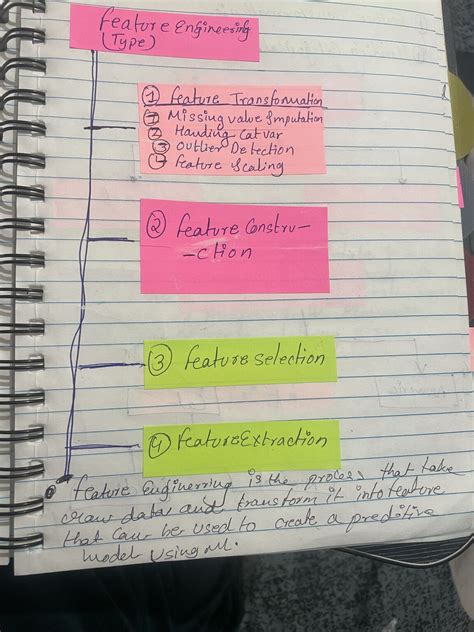 Feature Engineering
(Type)
① Feature Transformation
① Missing value Imputation
② Handing Cat var
③ Outlier Detection
④ Feature Scaling
② Feature Constru-
-ction
③ Feature Selection
④ Feature Extraction
Feature Enginerring is the proces, that take
raw data and transform it into feature
that can be used to create a preditive
model using ml.